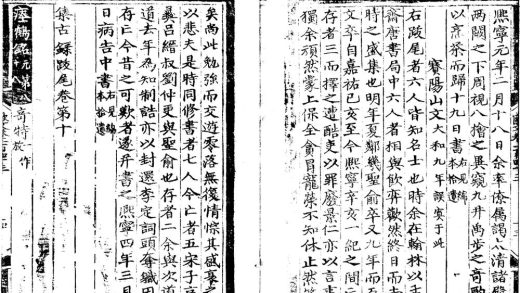 熙寧元年二月十八日余率僚屬謁太清諸殿
兩闕之下周視八檜之異窺九井禹步之奇酌
以烹茶而歸十九日書
右見綿本拾遺
賽陽山文大和九年誤寘于此
右跋尾者六人皆知名士也時余在翰林以
齋唐書局中六人者相與飲弈歡然終日而
時之盛集也明年夏鄰幾聖俞卒又九年而
文卒自嘉祐己亥至今熙寧辛亥一紀之間
存者三而擇之遭酷吏以罪廢景仁亦以言
獨余頑然蒙上保全貪冒寵榮不知休止然
矣尚此勉強而交遊零落無復情悰其盛衰之
以悲夫是時同修書者七人今亡者五宋子京
景彝呂縉叔劉仲更與聖俞也存者二余與次道
道去年為知制誥亦以封還李定詞頭奪職
存亡今昔之可歎者遂并書之熙寧四年三月
日病告中書
右見綿本拾遺
集古錄跋尾卷第十
瘞鶴銘